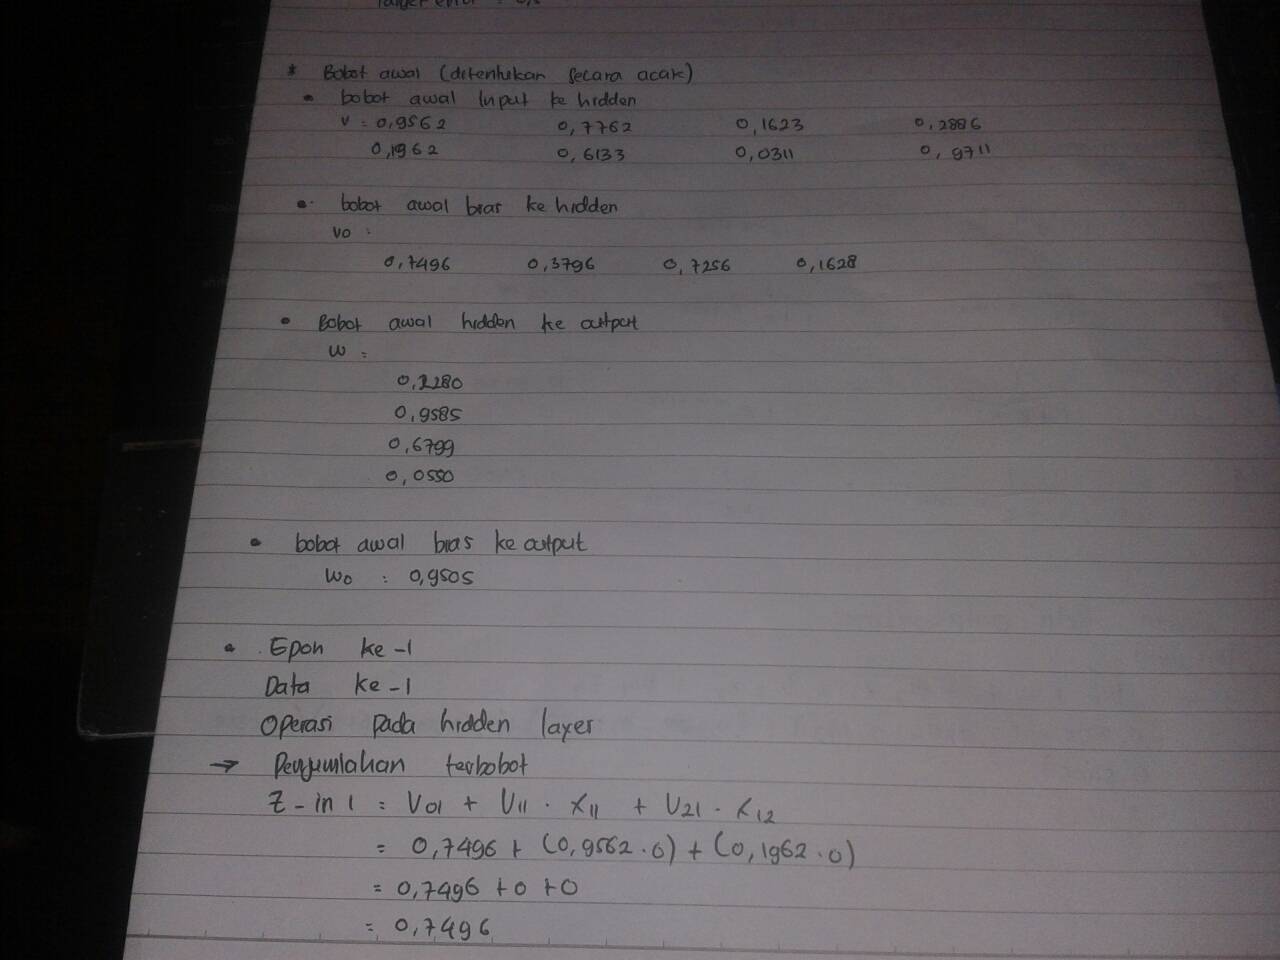 * Bobot awal (ditentukan secara acak)
• bobot awal Input ke hidden
V = 0,9562 0,7762 0,1623 0,2886
0,1962 0,6133 0,0311 0,9711
• bobot awal bias ke hidden
vo :
0,7496 0,3796 0,7256 0,1628
• Bobot awal hidden ke output
W =
0,2280
0,9585
0,6799
0,0550
• bobot awal bias ke output
Wo : 0,9505
• Epoh ke-1
Data ke-1
Operasi pada hidden layer
→ Penjumlahan terbobot
Z-in 1 = V01 + V11 . X11 + V21 . X12
= 0,7496 + (0,9562 . 0) + (0,1962 . 0)
= 0,7496 + 0 + 0
= 0,7496